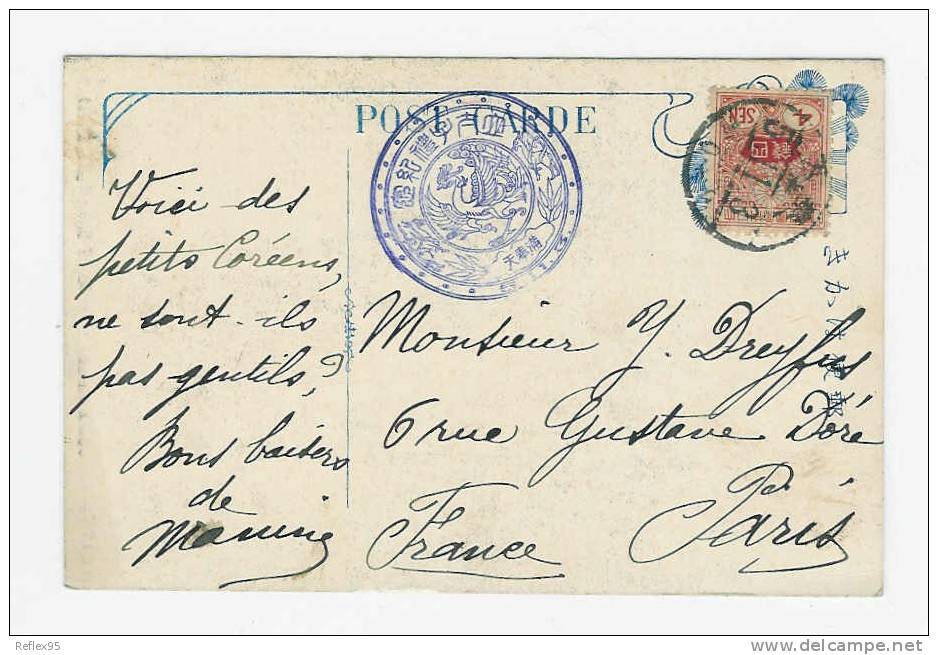 POST CARDE
4
SEN
Voici des
petits Coréens,
ne sont-ils
pas gentils?
Bons baisers
de
Monsieur Y. Dreyfus
6 rue Gustave Doré
Paris
France
きかは便郵
Reflex95
www.delcampe.net